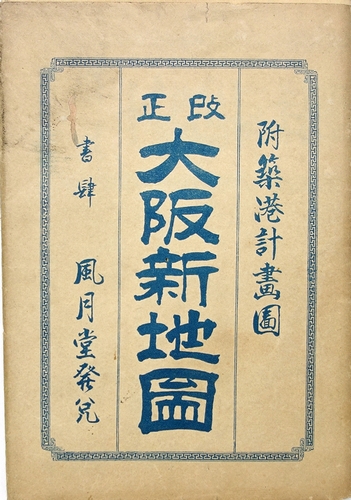 附築港計畫圖
改正
大阪新地圖
書肆 風月堂發兌